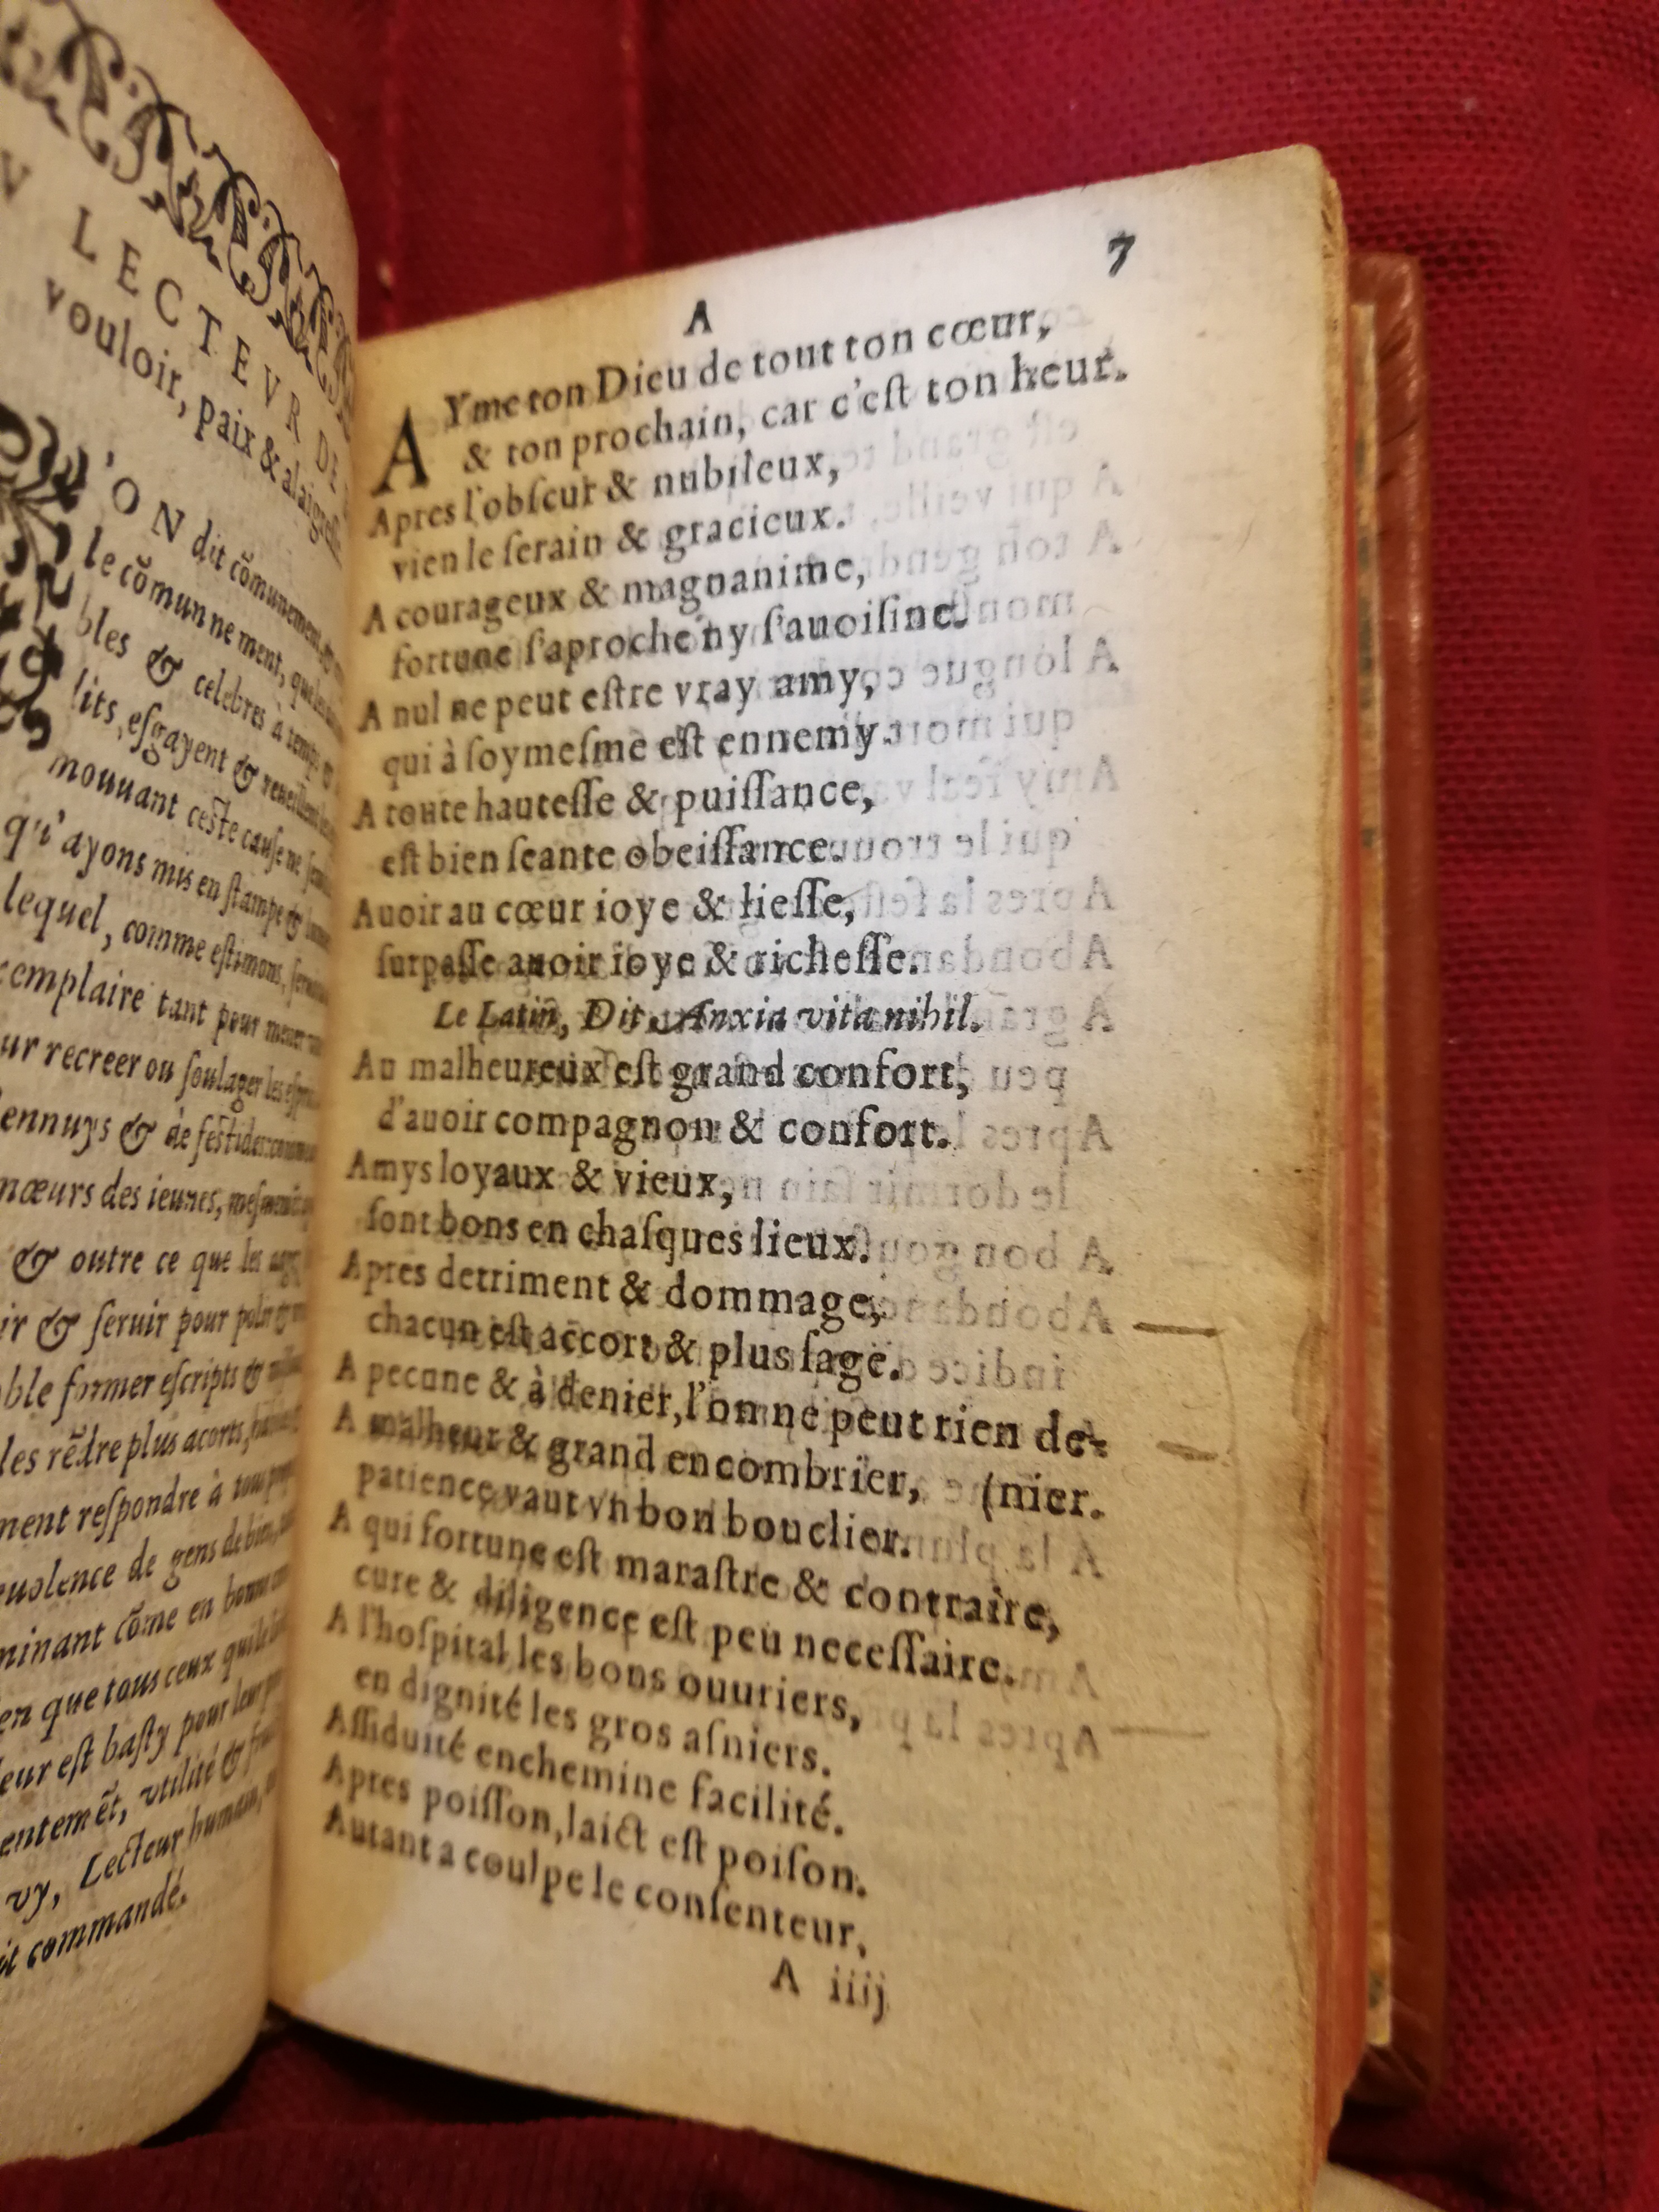 V LECTEVR DE
vouloir, paix & alaigresse
'ON dit cõmunement,
le cõmun ne ment,
bles & celebres à temps
lits, esgayent & reueillent
mouuant ceste cause ne
qu'ayons mis en stampe &
lequel, comme estimons,
emplaire tant pour mener
ur recreer ou soulager les
ennuys & de
mœurs des ieunes,
& outre ce que les
ir & seruir pour polir
ble former escripts &
les rẽdre plus acorts,
ment respondre à tou
euolence de gens de bien,
minant cõme en bonne
en que tous ceux qui
eur est basty pour leur
entemẽt, vtilité &
vy, Lecteur humain,
it commandé.
7
A
AYme ton Dieu de tout ton cœur,
& ton prochain, car c'eſt ton heur.
Apres l'obſcur & nubileux,
vien le ſerain & gracieux.
A courageux & magnanime,
fortune ſ'aproche ny ſ'auoiſine.
A nul ne peut eſtre vray amy,
qui à ſoymeſme eſt ennemy.
A toute hauteſſe & puiſſance,
eſt bien ſeante obeiſſance.
Auoir au cœur ioye & lieſſe,
ſurpaſſe auoir ioye & richeſſe.
Le Latin, Dit, Anxia vita nihil.
Au malheureux eſt grand confort,
d'auoir compagnon & confort.
Amys loyaux & vieux,
ſont bons en chaſques lieux.
Apres detriment & dommage,
chacun eſt accort & plus ſage.
A pecune & à denier, l'on ne peut rien de-
A malheur & grand encombrier, (nier.
patience vaut vn bon bouclier.
A qui fortune eſt maraſtre & contraire,
cure & diligence eſt peu neceſſaire.
A l'hoſpital les bons ouuriers,
en dignité les gros aſniers.
Aſſiduité enchemine facilité.
Apres poiſſon, laict eſt poiſon.
Autant a coulpe le conſenteur,
A iiij